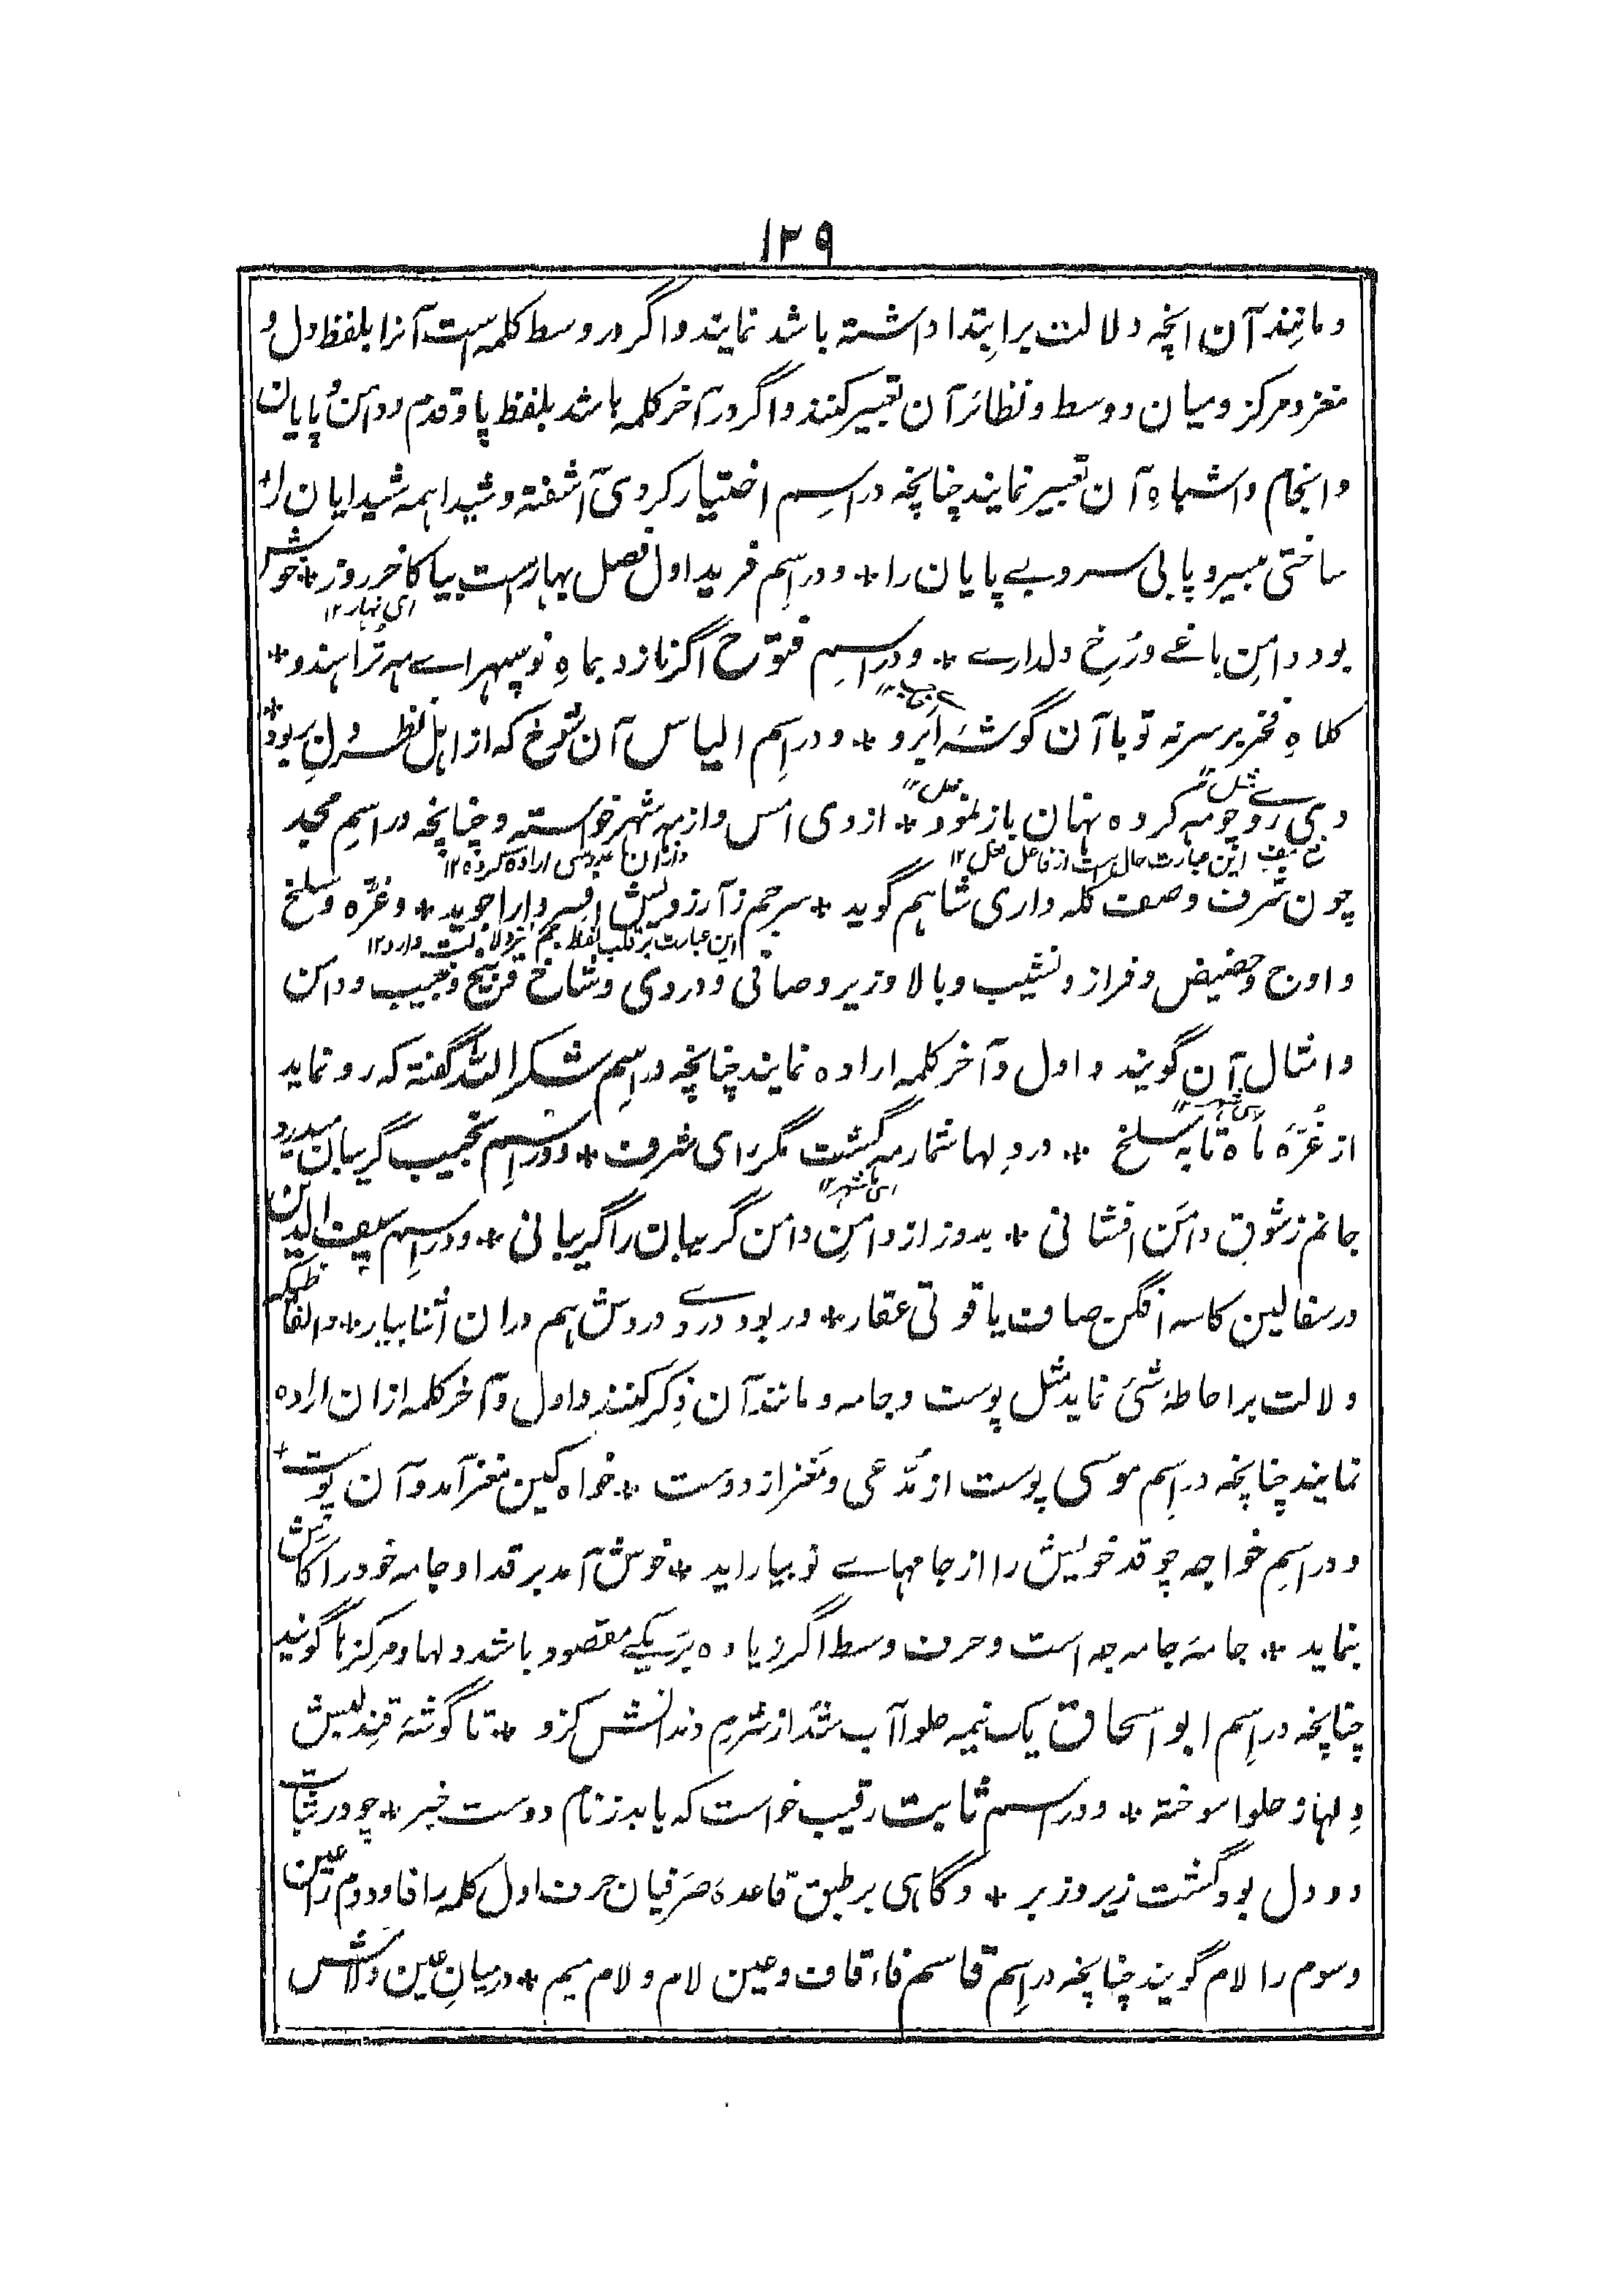 ۱۲۹
و مانند آن انچه دلالت بر ابتدا داشته باشد نمایند و اگر در وسط کلمه است آنرا بلفظ دل و
مغز و مرکز و میان و وسط و نظائر آن تعبیر کنند و اگر در آخر کلمه باشد بلفظ پا و قدم و دامن و پایان
و انجام و اشباهِ آن تعبیر نمایند چنانچه در اسم اختیار کردی آشفته و شیدا همه شیدایان را *
ساختی بیسر و پا بی سر و بے پایان را * و در اسم فرید اول فصل بهارست بیا کاخر روز * خوش
ای نهار ۱۲
بود دامنِ باغے و رُخِ دلدارے * و در اسمِ فتوح اگر نازد بماهِ نو سپهر اے مه تُرا هندو *
کلاهِ فخر بر سر نه تو با آن گوشهٔ ابرو * و در اسم الیاس آن شوخ که از اهل نظر دل بربود *
دی روے چو مه کرده نهان باز نمود * از دی امس و از مه شهر خواسته و چنانچه در اسمِ محمد
این عبارت حال ست از فاعل ۱۲
ازان اراده کرده ۱۲
چون شرف وصف کله داری شاهم گوید * سر جم ز آرزویش افسر دارا جوید * و غرّه و سلخ
این عبارت بر قلب لفظ جم نیز دلالت دارد ۱۲
و اوج و حضیض و فراز و نشیب و بالا و زیر و صافی و دردی و شاخ و بیخ و جیب و دامن
و امثال آن گویند و اول و آخر کلمه اراده نمایند چنانچه در اسم شکر الله گفته که رو نماید
از غُرّهٔ ماه تا به سلخ * در دلها شمار مه گشت مگر ای شرف * و در اسم نجیب گریبان میدرد
ای شهر ۱۲
جانم ز شوق دامن افشانی * بدوز از دامنِ دامن گریبان را گریبانی * و در اسم سیف الدین
در سفالین کاسه افگن صاف یاقوتی عقار * ور بود دردے و دردش هم دران اثنا بیار * و الفاظیکه
دلالت بر احاطهٔ شئ نماید مثل پوست و جامه و مانند آن ذکر کنند و اول و آخر کلمه ازان اراده
نمایند چنانچه در اسم موسی پوست از مُدّعی و مغز از دوست * خواه کین مغز آمد و آن پوست *
و در اسمِ خواجه چو قد خویش را از جامهاے نو بیاراید * خوش آمد بر قد او جامه خود را کاش
بنماید * جامهٔ جامه جه است و حرف وسط اگر زیاده بر یکے مقصود باشد دلها و مرکزها گویند
چنانچه در اسم ابو اسحاق یک نیمه حلوا آب شد از شرم دندانش کزو * تا گوشهٔ قند لبش
دلها ز حلوا سوخته * و در اسم ثابت رقیب خواست که یابد ز نام دوست خبر * چو در ثبات
دو دل بود گشت زیر و زبر * و گاهی بر طبق قاعدهٔ صرفیان حرف اول کلمه را فا و دوم را عین
و سوم را لام گویند چنانچه در اسم قاسم فاء قاف و عین لام و لام میم * در میانِ عین و لامش